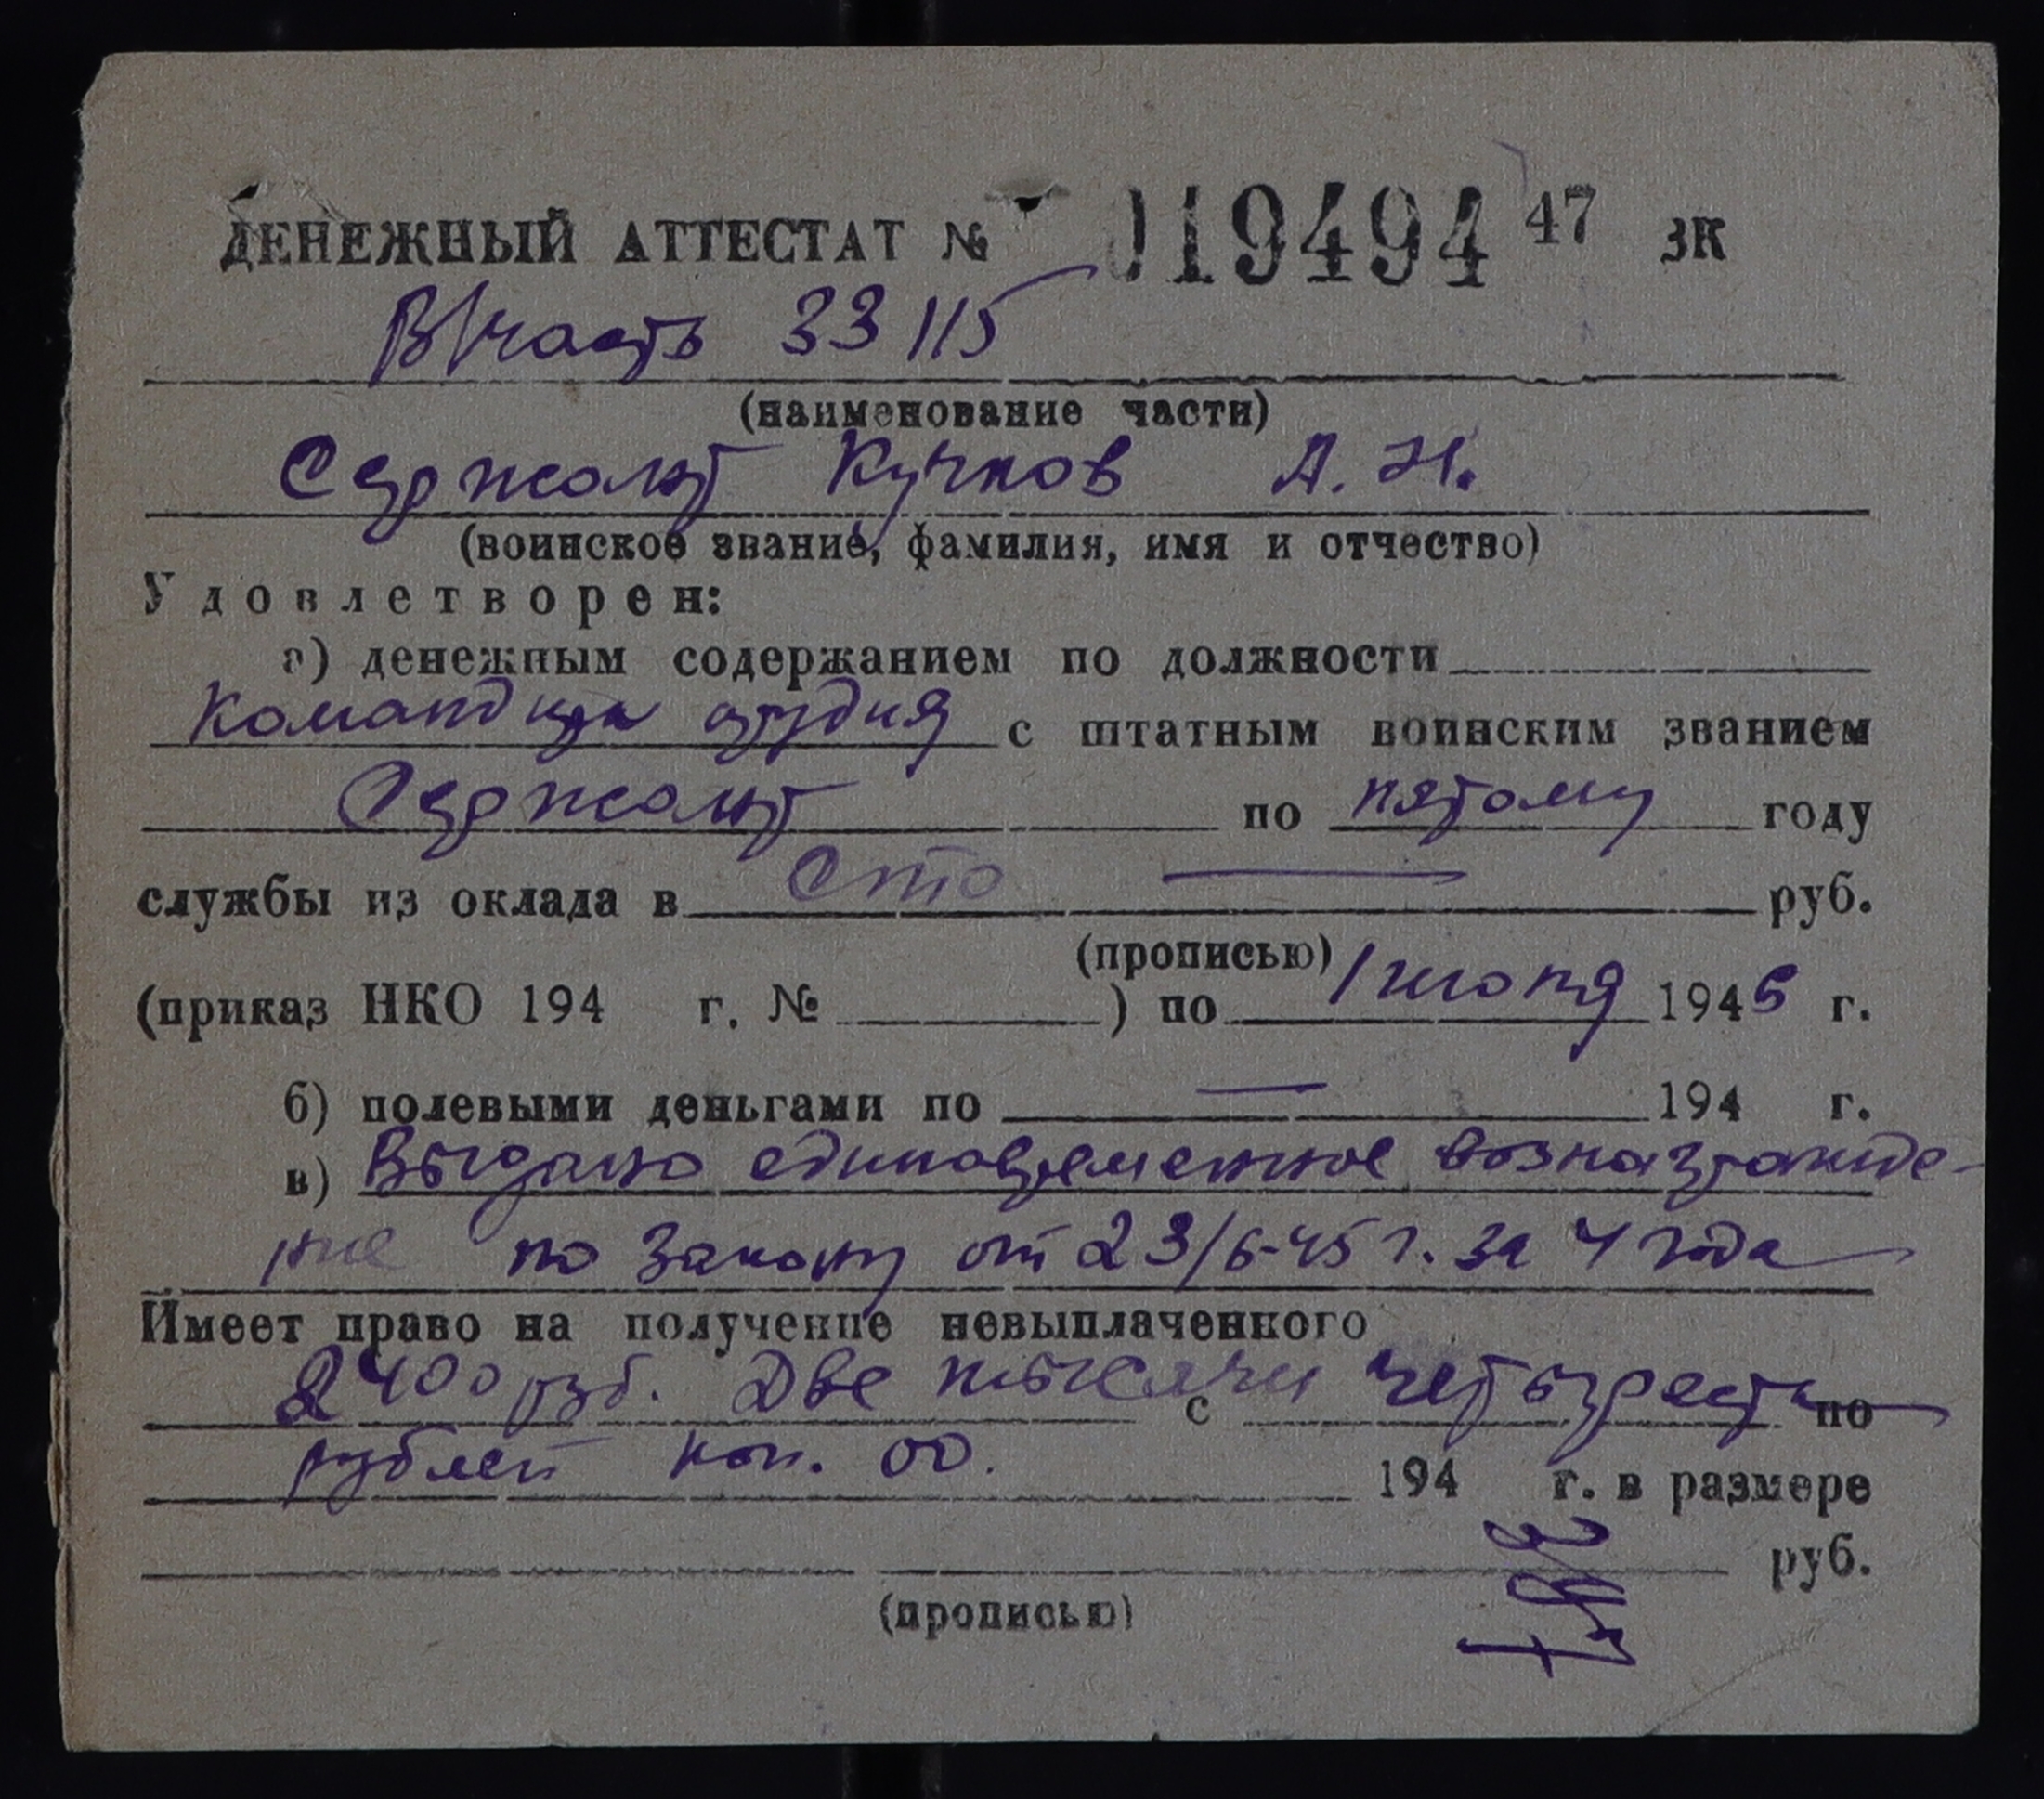 ДЕНЕЖНЫЙ АТТЕСТАТ № 019494 47 ЗК
В/часть 33115
(наименование части)
Сержант Кучков А. Н.
(воинское звание, фамилия, имя и отчество)
Удовлетворен:
а) денежным содержанием по должности
командира орудия с штатным воинским званием
Сержант по пятому году
службы из оклада в Сто — руб.
(прописью)
(приказ НКО 194 г. № ) по 1 июля 1945 г.
б) полевыми деньгами по — 194 г.
в) Выдано единовременное вознагражде-
ние по закону от 23/6-45 г. за 4 года
Имеет право на получение невыплаченного
2400 руб. Две тысячи с четыреста по
рублей коп. 00. 194 г. в размере
руб.
(прописью)